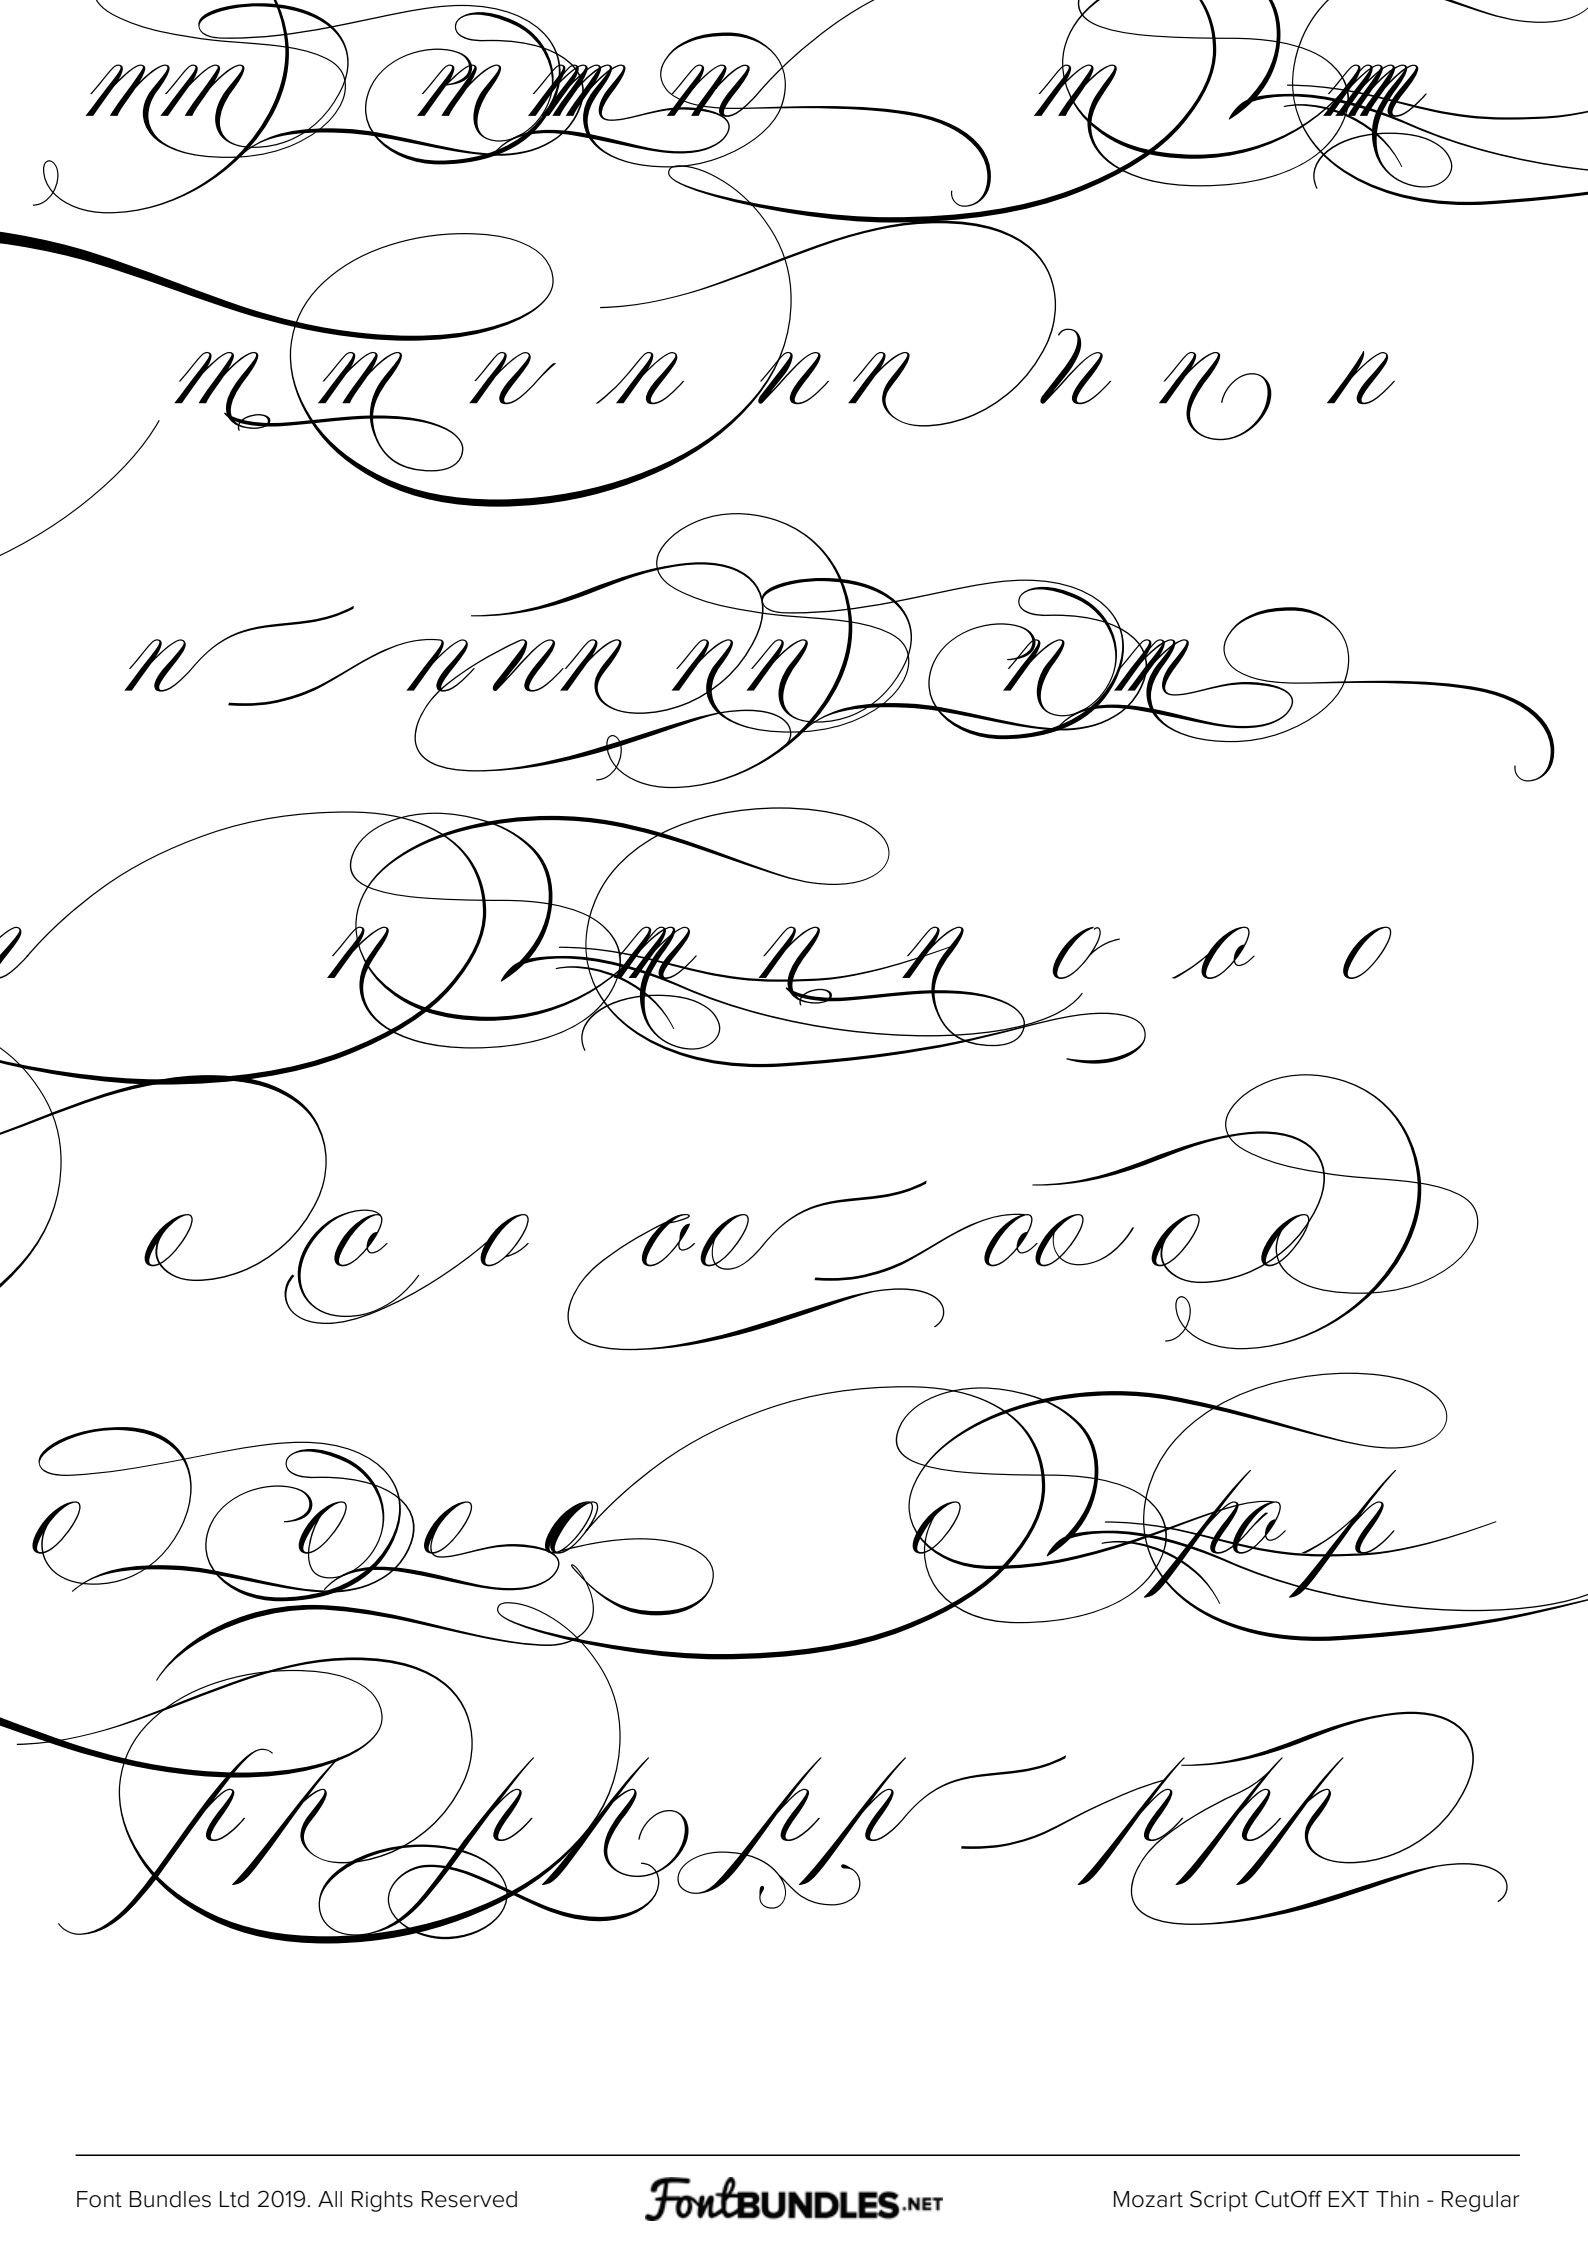 mm m m m m m
m m n n n n n n n n
n n n n n n n n m
n n m n n o o o
o o o o o o o o o o
o o o o o p o p
p p p p p p p p p
Font Bundles Ltd 2019. All Rights Reserved FontBUNDLES.NET Mozart Script CutOff EXT Thin - Regular